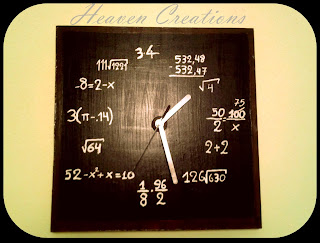 Heaven Creations
3·4
111√1221
532,48
- 532,47
-8=2-x
√4
3(π-.14)
75
50/2 = 100/x
√64
2+2
52-x²+x=10
126√630
1/8 · 96/2